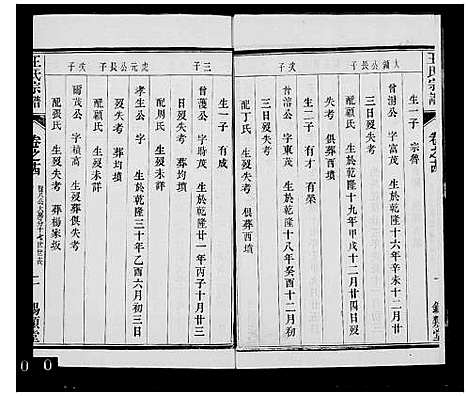 王氏宗譜
卷之四
一
大鎮公長子
次子
生一子 宗魯
曾湖公 字富茂 生於乾隆十六年辛未十二月
三日歿失考
配顧氏 生於乾隆十九年甲戌十二月廿四日歿
失考 俱葬西墳
生二子 有才 有榮
曾溶公 字東茂 生於乾隆十八年癸酉十二月
三日歿失考
配丁氏 歿失考 俱葬西墳
三子
元公長子
次子
生一子 有成
曾 公 字 茂 生於乾隆廿一年丙子十月廿三
日歿失考
配周氏 生歿失考 葬均墳
孝生公 字 生於乾隆三十年乙酉六月初三日
歿失考 葬均墳
配顧氏 生歿未詳
爾茂公 字積高 生歿俱失考
配張氏 生歿失考 葬楊家坂
王氏宗譜
卷之四
二
0 0